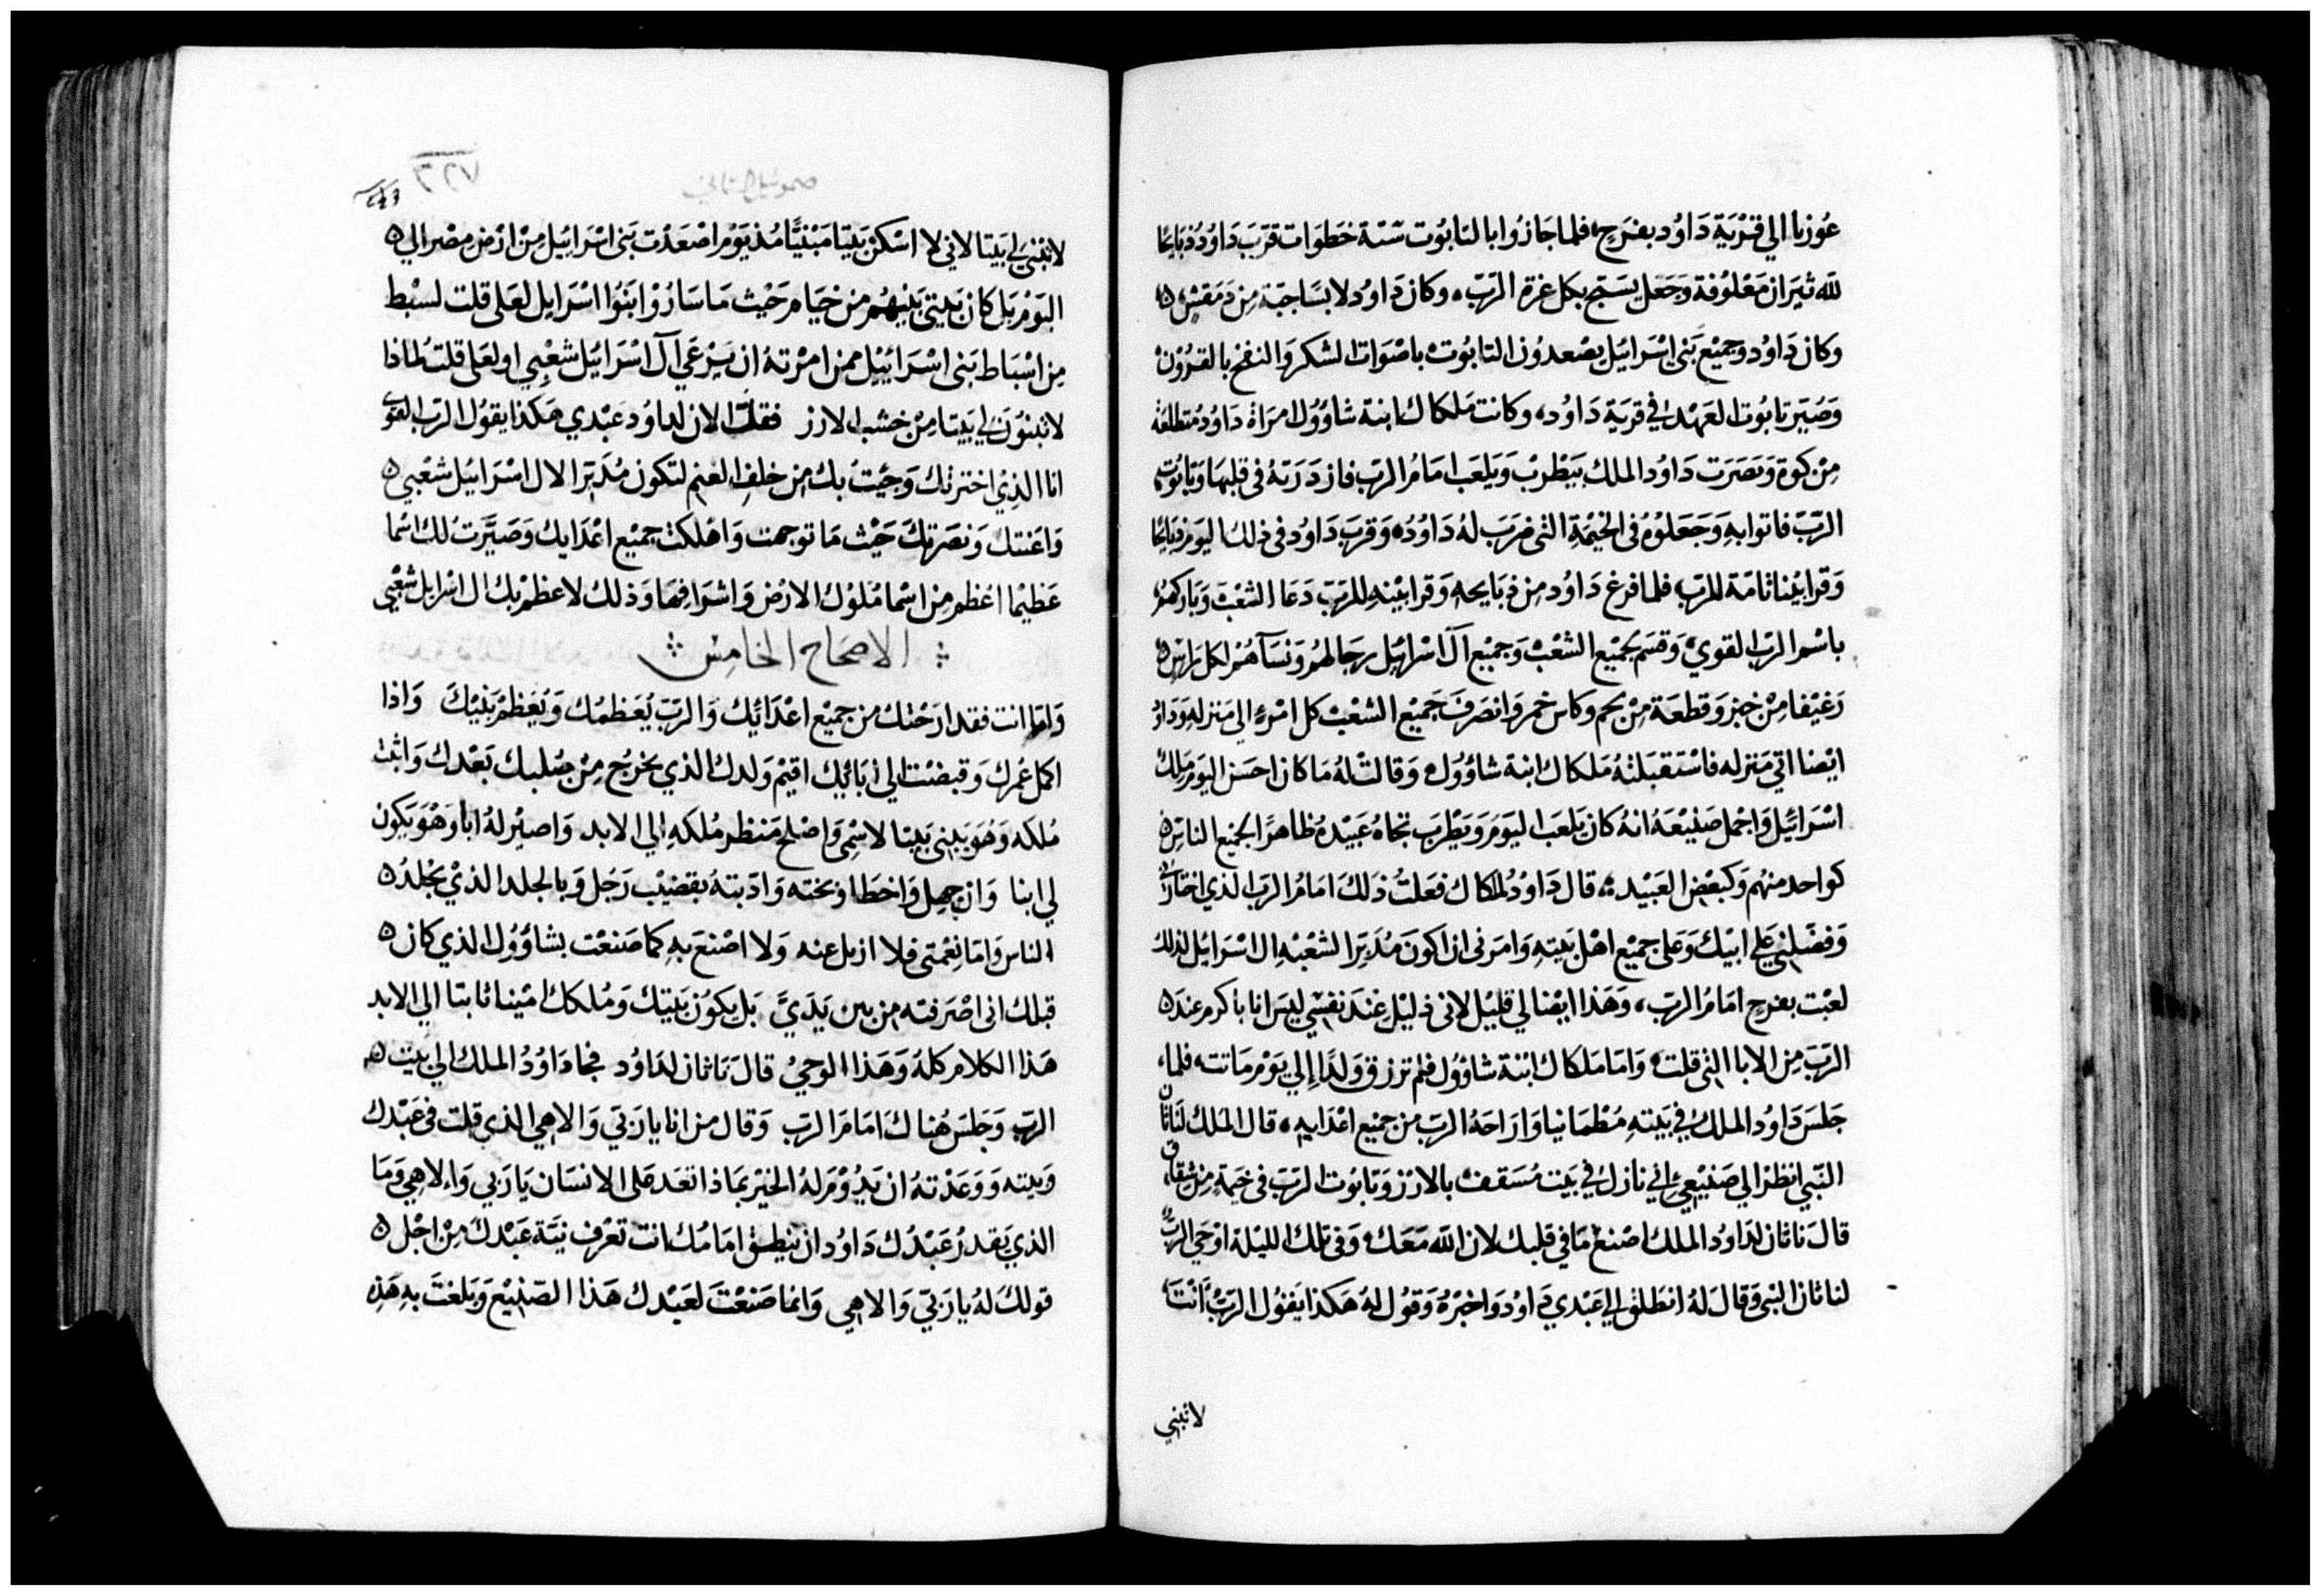 عُوزيا الي قرْيَة دَاوُد بفرَحٍ، فلما جَازُوا بالتابوُت ستة خَطَوات قرّبَ دَاوُد ذبَايحًا
لله ثيرَان مَعْلوُفة وَجَعَل يسَبّح بكل عزة الرّبّ، وكان دَاوُد لابسًا جبّة مِن دَمَقسٍ ه
وكان دَاوُد وجميْع بَني اسْرَائيل يصْعدوُن التابوُت باصْوَات الشكر وَالنفخ بالقروُن
وَصُيّر تابوت العَهْد في قريَة دَاوُد، وكانت مَلكاك ابنة شاوُول امرَاة دَاوُد متطلعَة
مِنْ كوة وَبَصَرَت دَاوُد الملك يَطْربْ وَيلعَب امَامُ الرّبّ فازدَرَتهُ في قلبهَا وَتابوُت
الرّبّ فاتوا بهِ وَجَعَلوْهُ في الخيْمَةِ التي ضرَبَ لهُ دَاوُد، وَقرب دَاوُد في ذلك اليَوم ذبَايحًا
وَقرابيْنا تامّة للرّبّ، فلما فرغ دَاوُد مِن ذبَايحهِ وَقرابيْنهِ للرّبّ دَعَا الشعْبَ وَبَاركهُمْ
باسْم الرّب القويْ، وَقسَم لجَميْع الشعْبْ وَجميْع آل اسْرَائيل رجَالهُم وَنسَآهُمْ لكل رَاسٍ ه
رَغيْفا مِنْ خبز وَقطعَة مِنْ لحم وكاس خمر وَانصَرفَ جَميْع الشعْبْ كل امْرءٍ الي مَنزلهِ وَدَاوُد
ايْضا اتي مَنزله فاسْتقبَلتهُ مَلكاك ابنة شاوُول، وَقالت لهُ مَا كان احسَن اليَوم مَلك
اسْرَائيل وَاجْمل صَنيْعَهُ انهُ كان يَلعَب اليَومَ وَيَطْرَب تجاهُ عَبيْدهُ ظاهرًا لجَميْع الناسِ ه
كواحد منهُم وَكبَعْض العَبيْد، قال دَاوُد لملكاك فعَلتُ ذلكَ امَامُ الرّب الذي اختارَني
وَفضّلني عَلي ابيْك وَعَلي جميْع اهْل بَيتهِ وَامرَني ان اكونَ مُدَبّرا لشعْبهِ ال اسْرَائيل لذلك
لعبْت بفرحٍ امَامُ الرّبّ، وَهَذا ايْضا لي قليْل لاني ذليْل عِندَ نفسِي ليسَ انا باكرم عندَ ه
الرّبّ مِن الابا التي قلت، وَامَا مَلكاك ابْنة شاوُول فلم ترزق وَلدًا الي يَوْم مَاتت، فلما
جَلسَ دَاوُد الملك في بَيتهِ مُطْمَانيا وَارَاحَهُ الرّبّ مِن جميْع اعْدَايهِ، قال الملك لناثان
النّبي انظرْ الي صَنيْعي اني نازل في بَيت مُسَقفْ بالارْز وَتابوُت الرّبّ في خيمَةٍ مِن شقاق
قالَ ناثان لدَاوُد الملك اصْنعْ مَا في قلبك لان الله مَعَك، وَفي تلك الليْلة اوْحي الرّبّ
لناثان النبي وَقالَ لهُ انطَلق الي عَبْدي دَاوُد وَاخبرْهُ وَقوُل لهُ هَكذا يَقوُل الرّبّ، انتَ
لاتبني
لاتبْني لي بَيتا لاني لا اسْكن بَيتا مَبْنيًّا مُذ يَوْم اصْعَدْت بَني اسْرَائيل مِنْ ارْض مِصْر الي ه
اليَوْم بَل كان بَيتي بَيْنهُم مِن خيَام حَيْث مَا سَارُوْا بَنوُا اسْرَايل لعَلي قلت لسبْط
مِن اسْبَاط بَني اسْرَائيْل ممن امرْتهُ ان يَرْعَي آل اسْرَائيل شعْبِي او لعَلي قلتُ لماذا
لاتبنوُن لي بَيتا مِنْ خشب الارز فقلت الان لداوُد عَبْدي هَكذا يقوُل الرّب القوي
انا الذِيْ اخترْتك وَجِئتُ بك مِن خلف الغنم لتكون مُدَبّرا لال اسْرَائيل شعْبي ه
وَاعَنتك وَنصَرتكَ حَيْث مَا توجهت وَاهْلكت جميْع اعْدَايك وَصَيّرت لك اسْما
عَظيْما اعْظم مِن اسْما مُلوُك الارْض وَاشْرَافهَا وَذلك لاعظم بك ال اسْرايل شعْبي
الاصحَاح الخامِسْ
وَامّا انت فقد ارَحْتك مِن جميْع اعْدَائيك وَالرّبّ يُعَظمُك وَيُعَظمْ بَنيْكَ وَاذا
اكمل عُمرك وَقبضت الي ابَائيك اقيْم وَلدك الذي يخرُج مِنْ صُلبك بَعْدك وَاثبت
مُلكه وَهُوَ يَبني بَيتا لاسْمي وَاصْلح مَنظر مُلكهِ الي الابد وَاصيْر لهُ ابا وَهْوَ يَكون
لي ابنا وَان جهِل وَاخطَا وَبخته وَادّبتهُ بقضيْب رَجُل وَبالجلد الذيْ يُجْلدُ ه
الناس وَامَا نِعْمَتي فلا ازيل عنه وَلا اصْنعَ بهِ كما صَنعْت بشاوُول الذي كان ه
قبلك اني اصْرَفته مِن بين يَدَيَّ بَل يكوُن بَيتك وَمُلكك امْينا ثابتا الي الابد
هَذا الكلام كلهُ وَهَذا الوحيْ قالَ ناثان لدَاوُد فجا دَاوُدُ الملك الي بيْت ه
الرّبّ وَجَلسَ هُناكَ امَامَ الرّبّ وَقال مِن انا يا رَبّي وَالاهي الذي قلت في عَبْدك
وَبيته وَوَعَدْتهُ ان يَدُوْمَ لهُ الخيْر بمَاذا تعَد عَلي الانسَان يا رَبي وَالاهِي وَمَا
الذي يَقدرُ عَبْدُك دَاوُد ان يَنطِق امَامُك انت تعْرف نيّة عَبْدكَ مِنْ اجْل ه
قولكَ لهُ يا رَبّي وَالاهِي وَانما صَنعْتَ لعَبْدك هَذا الصّنيْع وَبَلغْتَ بهِ هَذِه